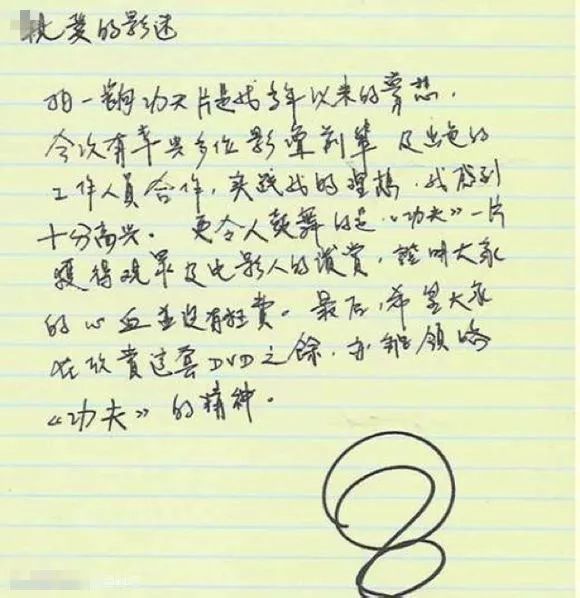 执爱的影迷
拍一齣功夫片是我多年以来的梦想,
今次有幸与多位影坛前辈及出色的
工作人员合作,实践我的理想,我感到
十分高兴. 更令人鼓舞的是《功夫》一片
獲得观眾及电影人的讚赏,證明大家
的心血並没有枉费。最后,希望大家
在欣賞这套DVD之餘,亦能领略
《功夫》的精神。